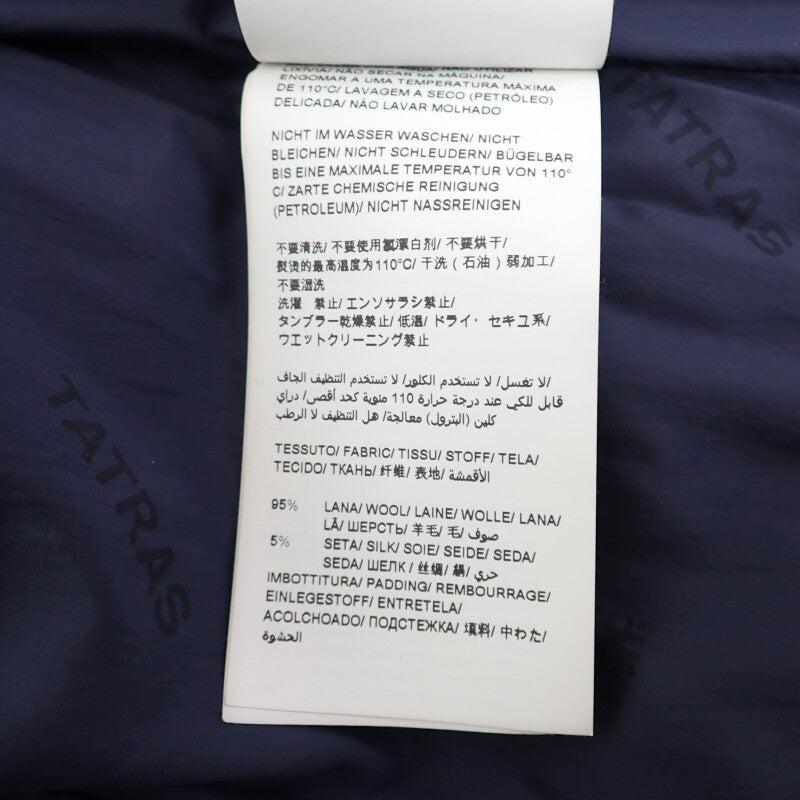 ÁGUA/ NÃO UTILIZAR
LIXÍVIA/ NÃO SECAR NA MÁQUINA/
ENGOMAR A UMA TEMPERATURA MÁXIMA
DE 110°C/ LAVAGEM A SECO (PETRÓLEO)
DELICADA/ NÃO LAVAR MOLHADO
NICHT IM WASSER WASCHEN/ NICHT
BLEICHEN/ NICHT SCHLEUDERN/ BÜGELBAR
BIS EINE MAXIMALE TEMPERATUR VON 110°
C/ ZARTE CHEMISCHE REINIGUNG
(PETROLEUM)/ NICHT NASSREINIGEN
不要清洗/ 不要使用氯漂白剂/ 不要烘干/
熨烫的最高温度为110°C/ 干洗（石油）弱加工/
不要湿洗
洗濯 禁止/ エンソサラシ禁止/
タンブラー乾燥禁止/ 低温/ ドライ・セキユ系/
ウエットクリーニング禁止
/لا تغسل/ لا تستخدم الكلور/ لا تستخدم التنظيف الجاف
قابل للكي عند درجة حرارة 110 مئوية كحد أقصى/ دراي
كلين (البترول) معالجة/ هل التنظيف لا الرطب
TESSUTO/ FABRIC/ TISSU/ STOFF/ TELA/
TECIDO/ ТКАНЬ/ 纤维/ 表地/ الأقمشة
95% LANA/ WOOL/ LAINE/ WOLLE/ LANA/
LÃ/ ШЕРСТЬ/ 羊毛/ 毛/ صوف
5% SETA/ SILK/ SOIE/ SEIDE/ SEDA/
SEDA/ ШЕЛК / 丝绸/ 絹/ حري
IMBOTTITURA/ PADDING/ REMBOURRAGE/
EINLEGESTOFF/ ENTRETELA/
ACOLCHOADO/ ПОДСТЕЖКА/ 填料/ 中わた/
الحشوة
TATRAS
TATRAS